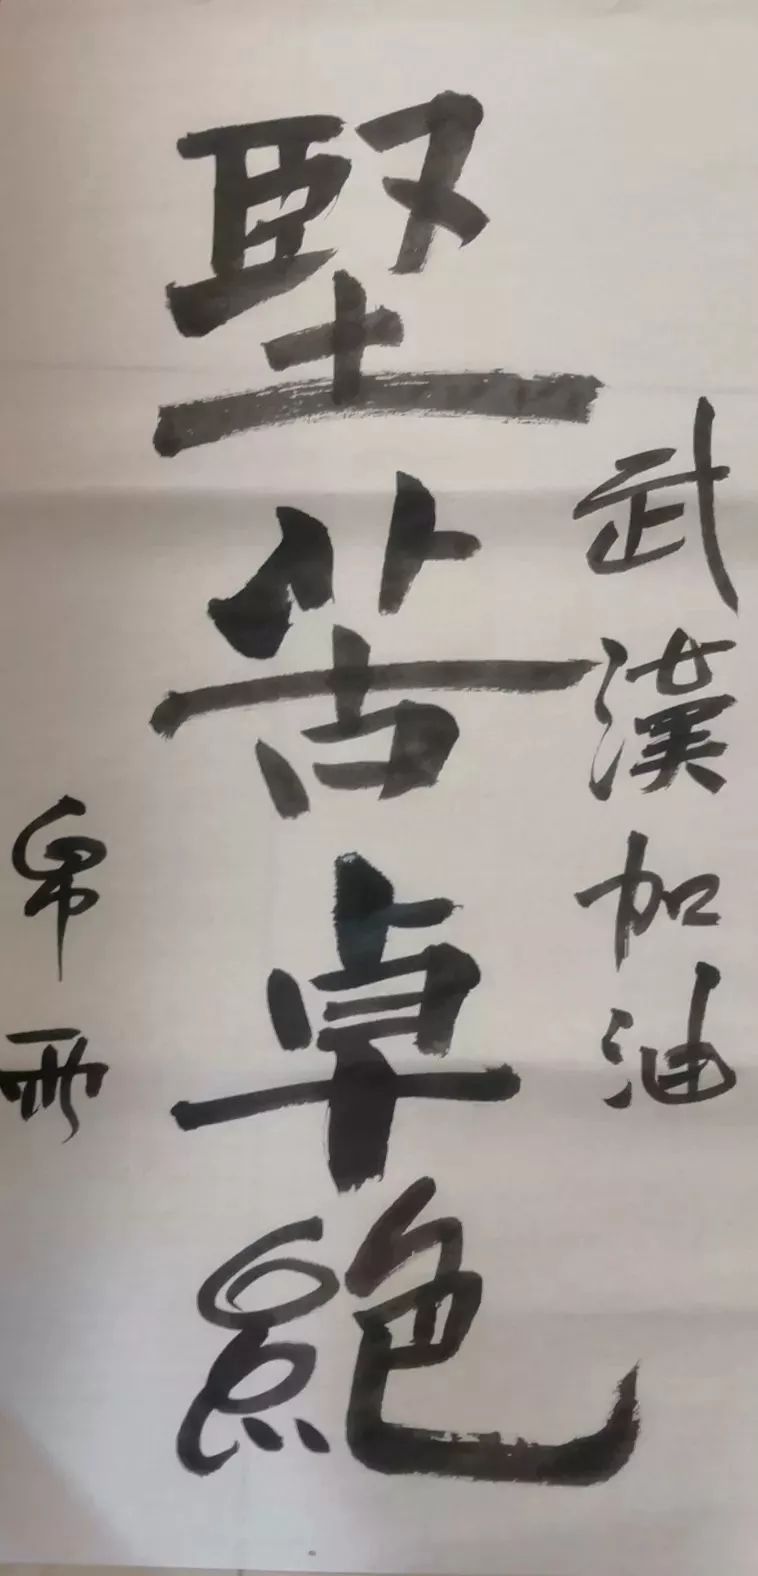 武漢加油
堅苦卓絕
帛西